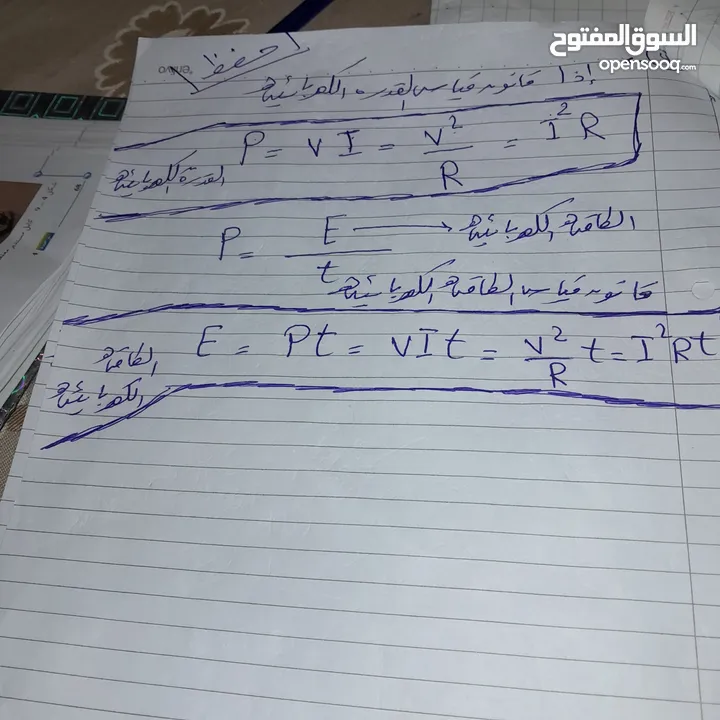 السوق المفتوح
opensooq.com
احفظ
إذا قانون قياس القدره الكهربائية
P = VI = V²/R = I²R
القدرة الكهربائية
P = E/t → الطاقة الكهربائية
قانون قياس الطاقة الكهربائية
E = Pt = VIt = V²/R t = I²Rt
الطاقة
الكهربائية